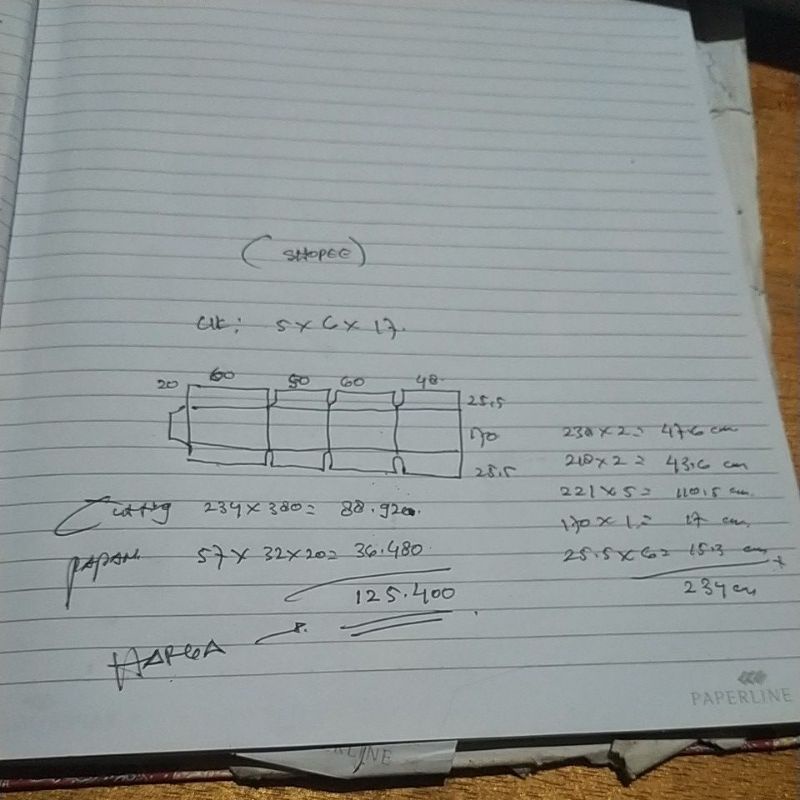 (SHOPEE)
UK: 5 x 6 x 17.
20 60 50 60 48
25.5
170
25.5
238 x 2 = 47.6 cm
218 x 2 = 43.6 cm
221 x 5 = 110.5 cm
170 x 1 = 17 cm
25.5 x 6 = 15.3 cm +
234 cm
Cutting 234 x 380 = 88.920.
PAPAN 57 x 32 x 20 = 36.480
125.400
HARGA
PAPERLINE